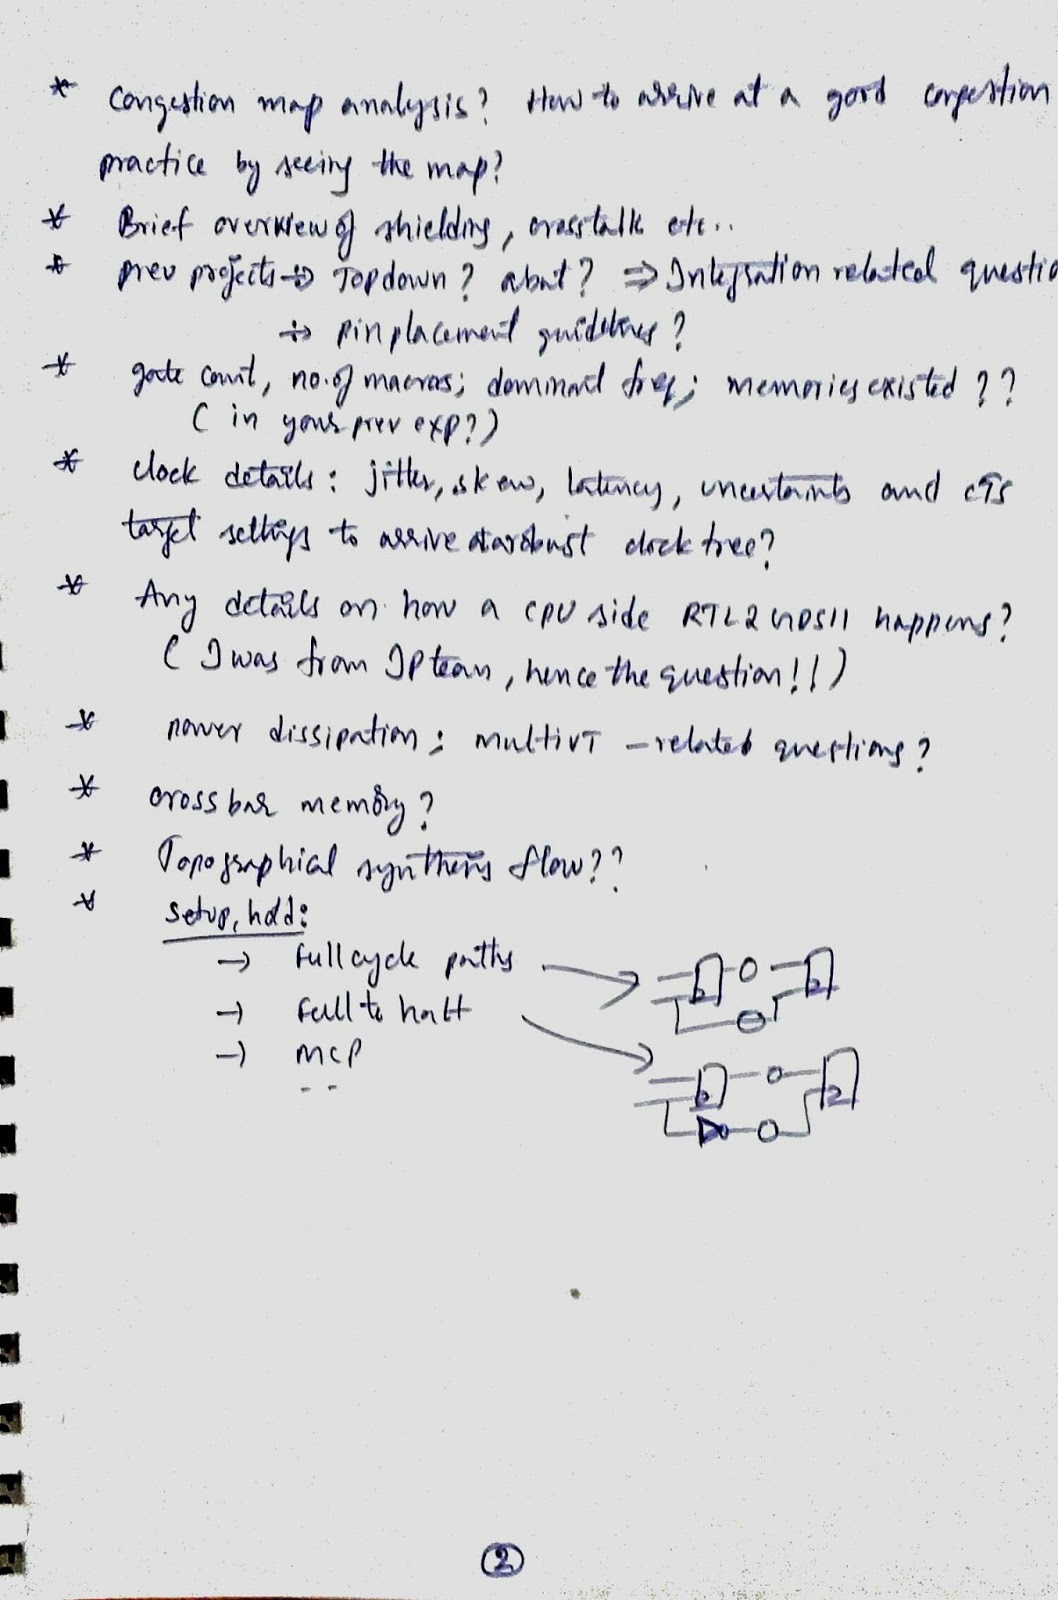 * Congestion map analysis? How to arrive at a good congestion
practice by seeing the map?
* Brief overview of shielding, crosstalk etc..
* prev projects → Topdown? abut? ⇒ Integration related questio
→ pin placement guidelines?
* gate count, no. of macros; dominant freq; memories existed??
( in your prev exp?)
* clock details: jitter, skew, latency, uncertainty and CTS
target settings to arrive at a robust clock tree?
* Any details on how a CPU side RTL2GDSII happens?
( I was from IP team, hence the question!!)
* power dissipation; multivT - related questions?
* cross bar memory?
* Topographical synthesis flow??
* setup, hold:
→ full cycle paths
→ full to half
→ MCP
2